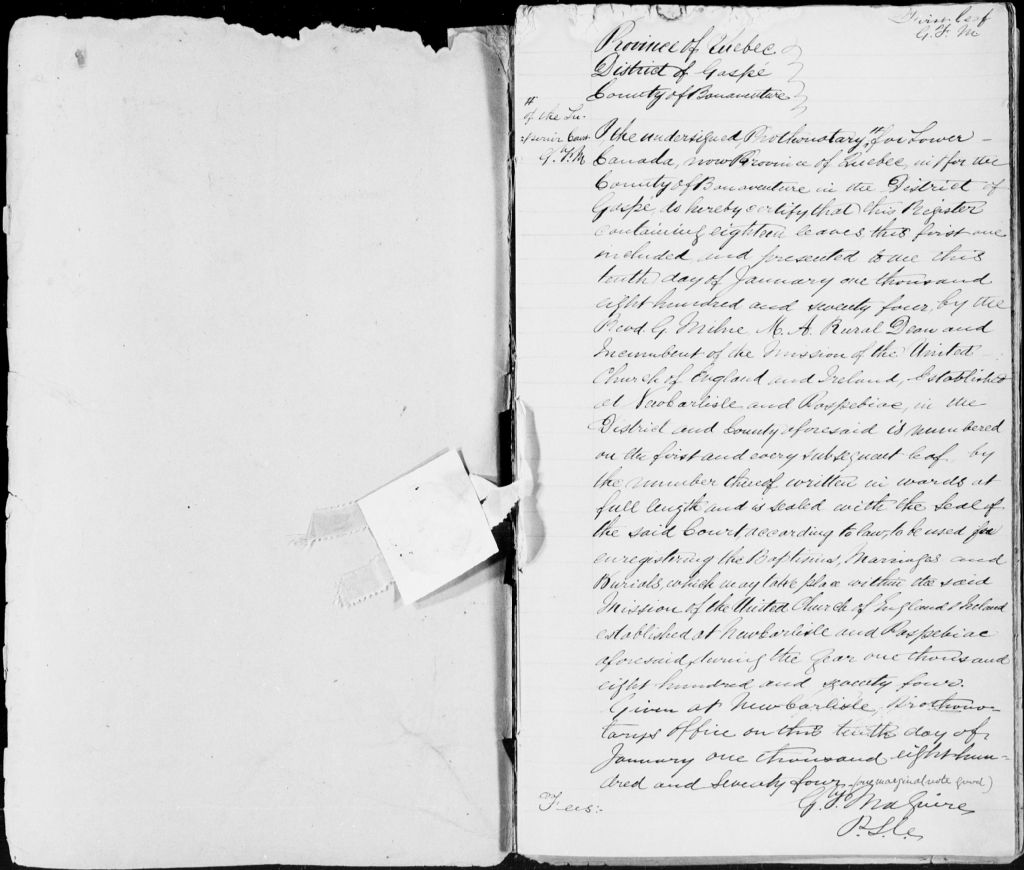 First leaf
G. F. M
Province of Quebec
District of Gaspé
County of Bonaventure
# of the Su-
perior Court
G. F. M
I the undersigned, Prothonotary # for Lower
Canada, now Province of Quebec, in & for the
County of Bonaventure in the District of
Gaspé, do hereby certify that this Register
containing eighteen leaves this first one
included and presented to me this
tenth day of January one thousand
eight hundred and seventy four, by the
Revd. G. Milne M. A. Rural Dean and
Incumbent of the Mission of the United
Church of England and Ireland, established
at New Carlisle and Paspebiac, in the
District and County aforesaid is numbered
on the first and every subsequent leaf by
the number thereof written in words at
full length and is sealed with the Seal of
the said Court, according to law, to be used for
enregistering the Baptisms, Marriages and
Burials, which may take place within the said
Mission of the United Church of England & Ireland
established at New Carlisle and Paspebiac
aforesaid, during the year one thousand
eight hundred and seventy four.
Given at New Carlisle, Prothono-
tarys Office on this tenth day of
January one thousand eight hun-
dred and seventy four (one marginal note good)
Fees:
G. F. Maguire
P. S. C.